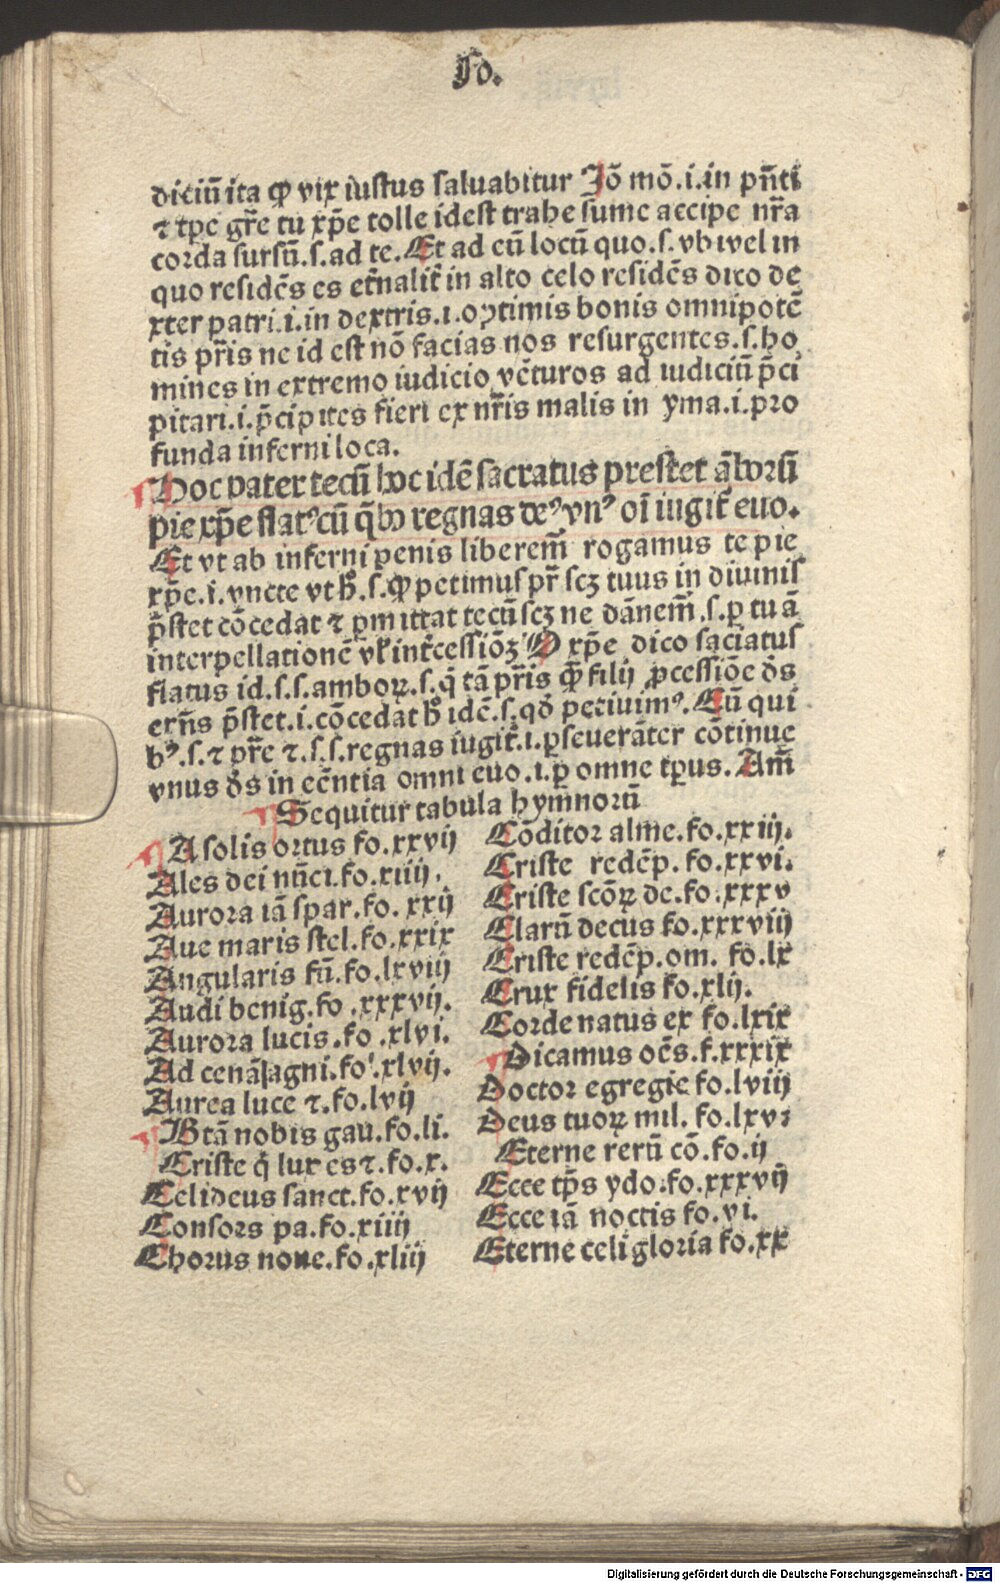 Fo.
diciū ita ꝙ vix iustus saluabitur Jō mō.i.in pn̄ti
⁊ tpe gr̄e tu xp̄e tolle idest trahe sume accipe nr̄a
corda sursū.s.ad te.Et ad eū locū quo.s.vbi vel in
quo residēs es et̄nalit̄ in alto celo residēs dico de
xter patri.i.in dextris.i.optimis bonis omnipotē
tis pr̄is ne id est nō facias nos resurgentes.s.ho
mines in extremo iudicio vēturos ad iudiciū p̄ci
pitari.i.p̄cipites fieri ex nr̄is malis in yma.i.pro
funda inferni loca.
Hoc pater tecū hoc idē sacratus prestet āborū
pie xp̄e flatꝰ cū q̄bꝰ regnas deꝰ vnꝰ oī iugit̄ euo.
Et vt ab inferni penis liberem̄ rogamus te pie
xp̄e.i.vncte vt h̄.s.ꝙ petimus pr̄ scꝫ tuus in diuinis
p̄stet cōcedat ⁊ ꝑmittat tecū scꝫ ne dānem̄.s.ꝑ tuā
interpellationē vl̓ int̄cessiōꝫ O xp̄e dico saciatus
flatus id.s.s.amboꝝ.s.q̇ tā pr̄is ꝙ̄ filij ꝓcessiōe ds̄
ern̄s p̄stet.i.cōcedat h̄ idē.s.qd̓ petiuimꝰ.Cū qui
bꝰ.s.⁊ pr̄e ⁊.s.s.regnas iugit̄.i.ꝑseuerāter cōtinue
vnus ds̄ in ec̄ntia omni euo.i.ꝑ omne tꝑus.Am̄
Sequitur tabula hymnorū
A solis ortus fo.xxvij
Ales dei nūci.fo.xiiij.
Aurora iā spar.fo.xxij
Aue maris stel.fo.xxix
Angularis fū.fo.lxviij
Audi benig.fo.xxxvij.
Aurora lucis.fo.xlvi.
Ad cenā agni.fo.xlvij.
Aurea luce ⁊.fo.lvij
Btā nobis gau.fo.li.
Criste q̇ lux es ⁊.fo.x.
Celi deus sanct.fo.xvij
Consors pa.fo.xiiij
Chorus noue.fo.xliij
Cōditor alme.fo.xxiij.
Criste redēp.fo.xxvi.
Criste scōꝝ de.fo.xxxv
Clarū decus fo.xxxviij
Criste redēp.om. fo.lx
Crux fidelis fo.xlij.
Corde natus ex fo.lxix
Dicamus oēs.f.xxxix
Doctor egregie fo.lviij
Deus tuoꝝ mil. fo.lxvi
Eterne rerū cō.fo.ij
Ecce tp̄s ydo.fo.xxxvij
Ecce iā noctis fo.vi.
Eterne celi gloria fo.xx
Digitalisierung gefördert durch die Deutsche Forschungsgemeinschaft - DFG